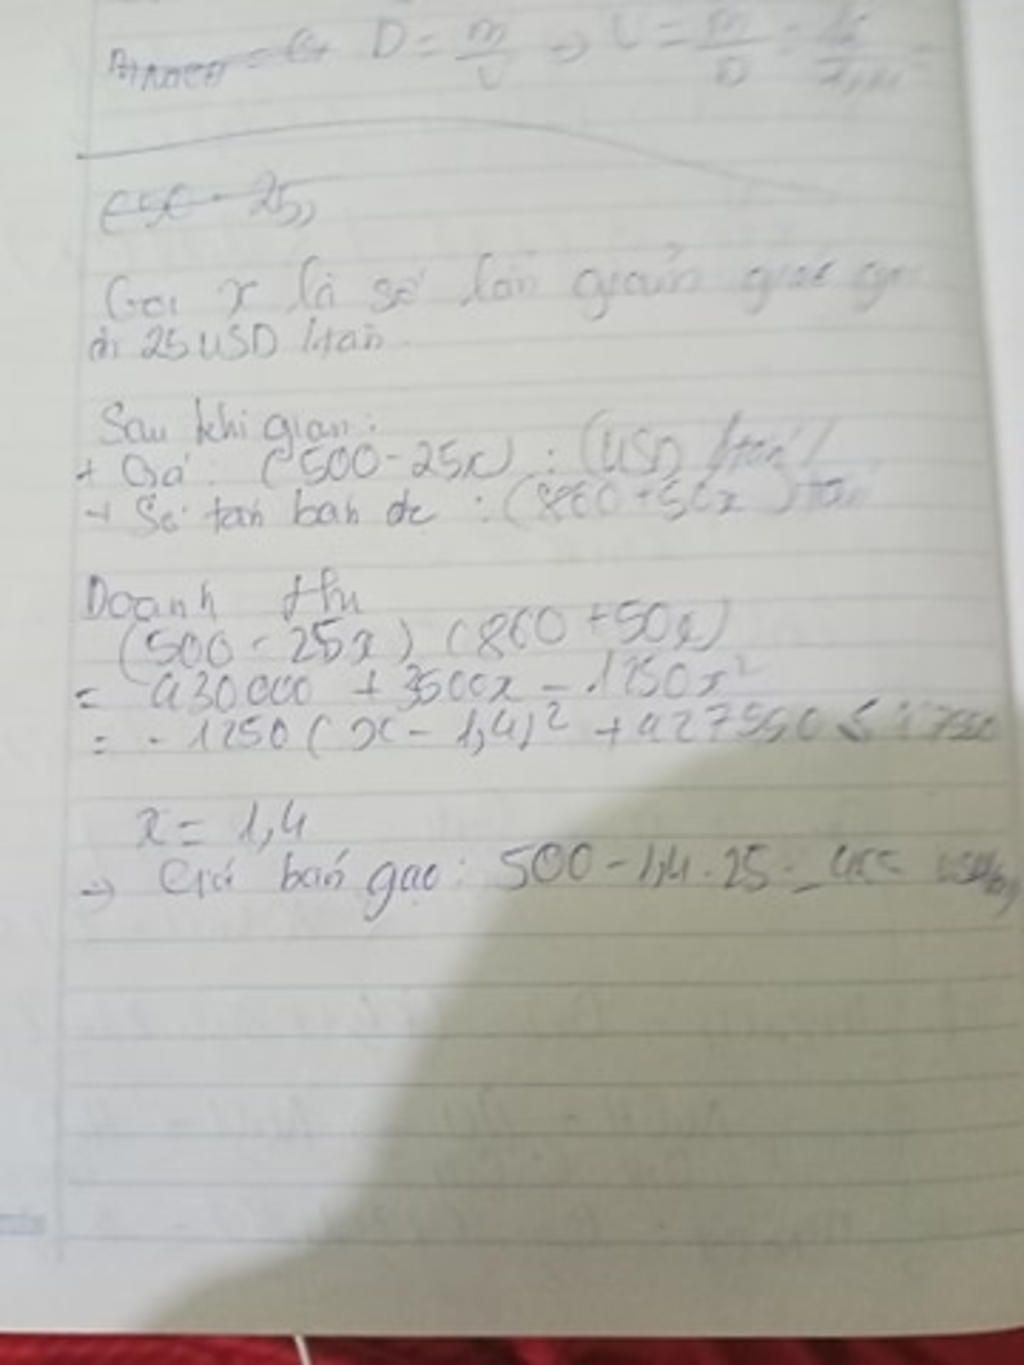 D = m/V => V = m/D =
Gọi x là số lần giảm giá
25 USD /tấn
Sau khi giảm:
+ Giá: (500 - 25x) : (USD /tấn)
+ Số tấn bán đc : (860 + 50x) tấn
Doanh thu
(500 - 25x) (860 + 50x)
= 430000 + 3500x - 1250x²
= - 1250 (x - 1,4)² +
x = 1,4
=> Giá bán gạo : 500 - 1,4 . 25 =